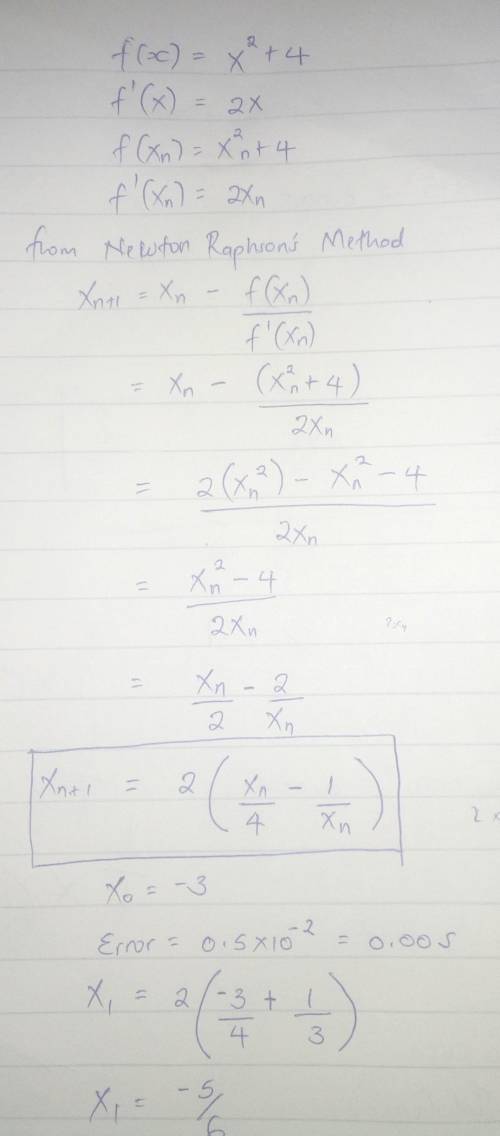 f(x) = x² + 4
f'(x) = 2x
f(xₙ) = xₙ² + 4
f'(xₙ) = 2xₙ
from Newton Raphson's Method
xₙ₊₁ = xₙ - f(xₙ)/f'(xₙ)
= xₙ - (xₙ² + 4)/2xₙ
= (2(xₙ²) - xₙ² - 4)/2xₙ
= (xₙ² - 4)/2xₙ
= xₙ/2 - 2/xₙ
xₙ₊₁ = 2(xₙ/4 - 1/xₙ)
x₀ = -3
Error = 0.5×10⁻² = 0.005
x₁ = 2(-3/4 + 1/3)
x₁ = -5/6